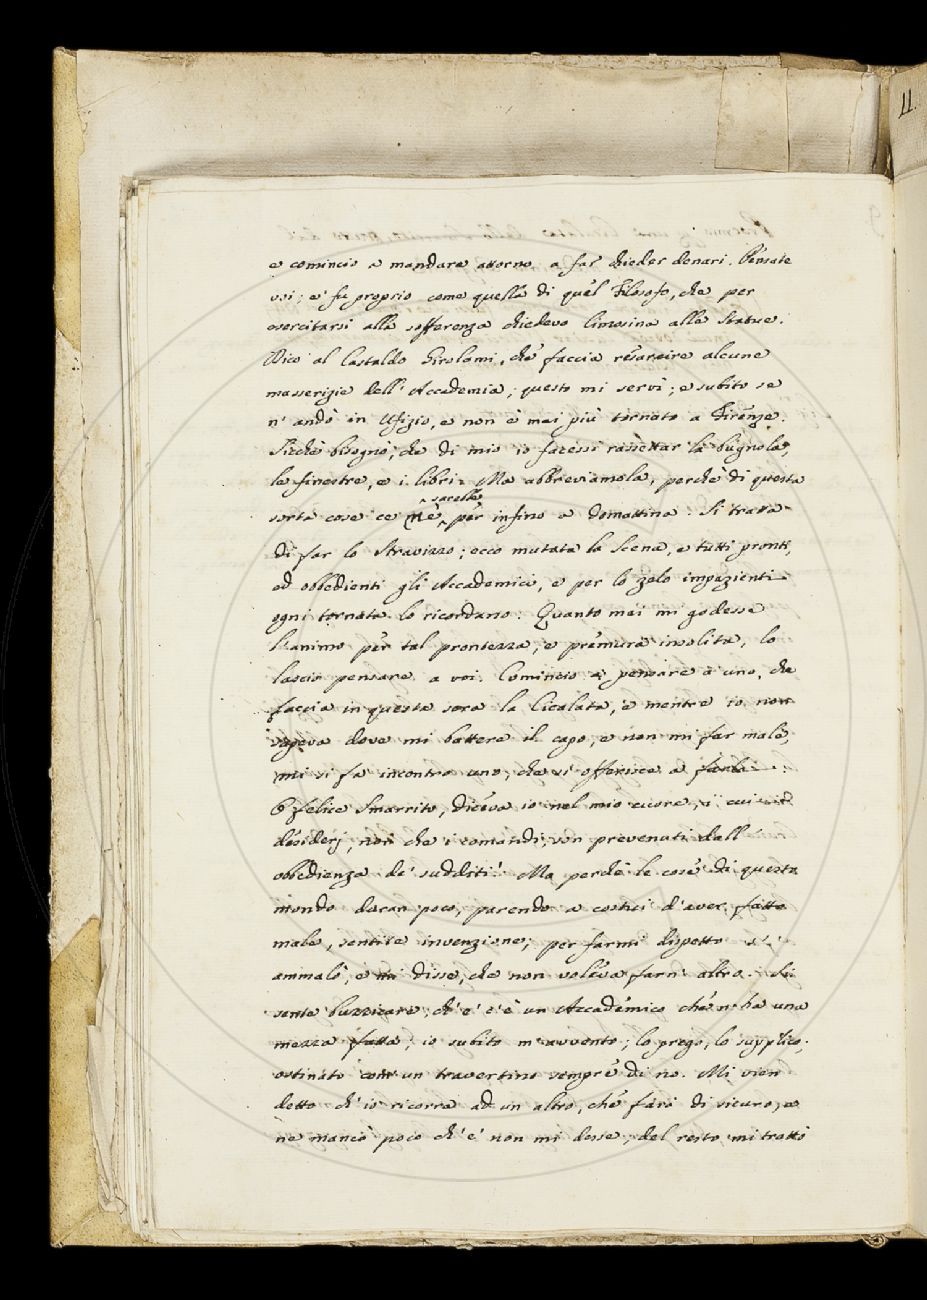 11.
e comincio a mandare attorno a far chieder denari. Pensate
voi; e' fu proprio come quella di quel Filosofo, che per
esercitarsi alla sofferenza chiedeva limosina alle Statue.
Dico al Castaldo Girolami, che faccia resarcire alcune
masserizie dell'Accademia; questo mi servì; e subito se
n'andò in Ufizio, e non è mai più tornato a Firenze.
Sicchè bisognò, che di mio io facessi rassettar la bugnola,
le finestre, e i libri. Ma abbreviamola, perchè di questa
sorta cose ce n'è sacella per infino a domattina. Si tratta
di far lo Stravizzo; ecco mutata la Scena, e tutti pronti,
ed obbedienti gli Accademici, e per lo zelo impazienti
ogni tornata lo ricordano. Quanto mai mi godesse
l'animo per tal prontezza, e premura insolita, lo
lascio pensare a voi. Comincio a pensare a uno, che
faccia in questa sera la Cicalata, e mentre io non
sapeva dove mi battere il capo, e non mi far male,
mi si fa incontro uno, che si offerisce a farla.
O felice Smarrito, diceva io nel mio cuore, i cui
desiderj, non che i comandi, son prevenuti dall'
obbedienza de' sudditi! Ma perchè le cose di questo
mondo duran poco, parendo a costui d'aver fatto
male, sentite invenzione; per farmi dispetto s'
ammalò, e mi disse, che non voleva farn' altro. Si
sente buzzicare, ch'e' c'è un Accademico che n'ha una
mezza fatta; io subito m'avvento; lo prego, lo supplico;
ostinato com' un travertino sempre di no. Mi vien
detto ch'io ricorra ad un altro, che farà di sicuro, e
ne mancò poco ch'e' non mi desse; del resto mi trattò